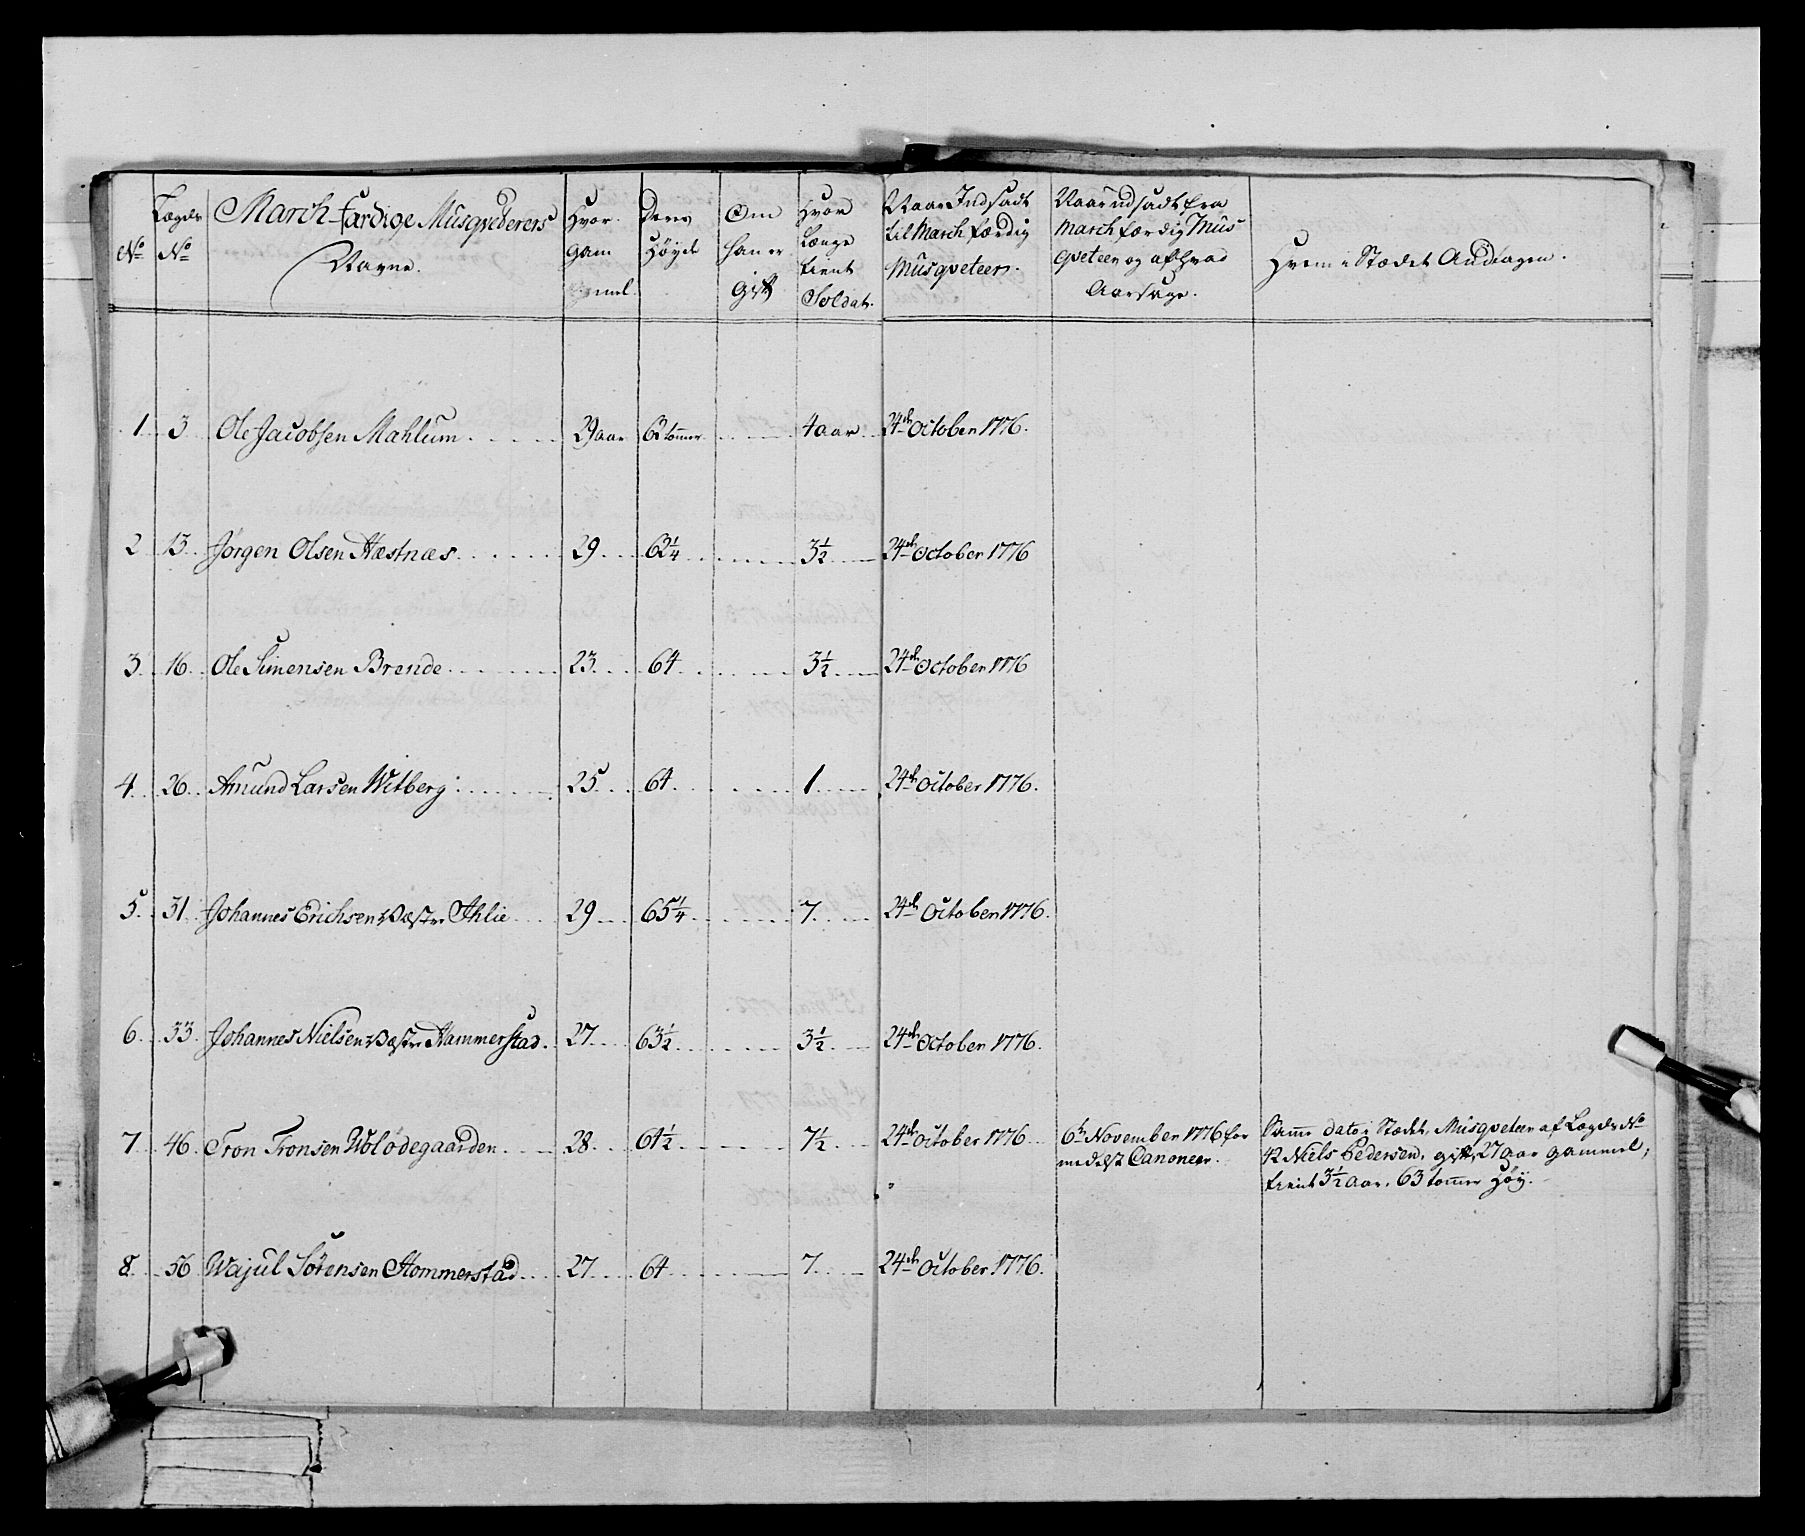 No
Lægds No
March-færdige Musqveterers Navne.
Hvor gam mel.
Deres Høyde
Om han er Gift
Hvor Længe tient Soldat.
Naar Indsadt til March færdig Musqveteer.
Naar udsadt fra March færdig Musqveteer og af hvad Aarsage.
Hvem i Stædet Andtagen.
1 3 Ole Jacobsen Mahlum 29 aar 62 tommer 4 aar 24de October 1776.
2 13 Jørgen Olsen Næstnæs 29 62¼ 3½ 24de October 1776
3 16 Ole Simensen Brende 23 64 3½ 24de October 1776
4 26 Amund Larsen Witberg 25 64 1 24de October 1776.
5 31 Johannes Erichsen Væstre Ihlie 29 65¼ 7 24de October 1776.
6 33 Johannes Nielsen Væstre Hammerstad 27 63½ 3½ 24de October 1776.
7 46 Tron Tronsen Ulødegaarden 28 61½ 7½ 24de October 1776 6te November 1776 for Samme dato i Stædet, Musqveteer af Lægds No
medelst Canoneer. 42 Niels Pedersen, gift, 27 aar gammel,
tient 3½ aar, 63 tommer høy.
8 56 Wajul Sørensen Hommerstad 27 64 7 24de October 1776.